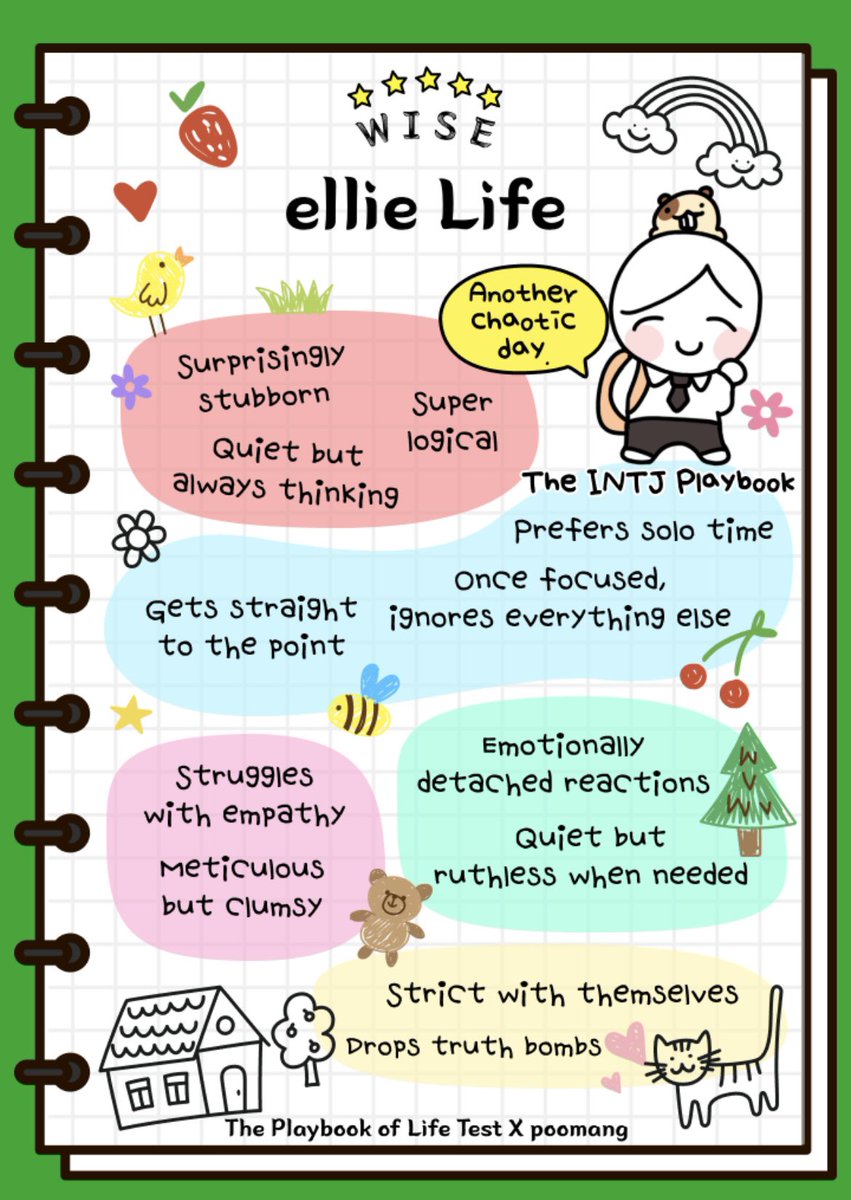 WISE
ellie Life
Another
chaotic
day.
Surprisingly
stubborn
Super
logical
Quiet but
always thinking
The INTJ Playbook
Prefers solo time
Once focused,
ignores everything else
Gets straight
to the point
Struggles
with empathy
Meticulous
but clumsy
Emotionally
detached reactions
Quiet but
ruthless when needed
Strict with themselves
Drops truth bombs
The Playbook of Life Test X poomang